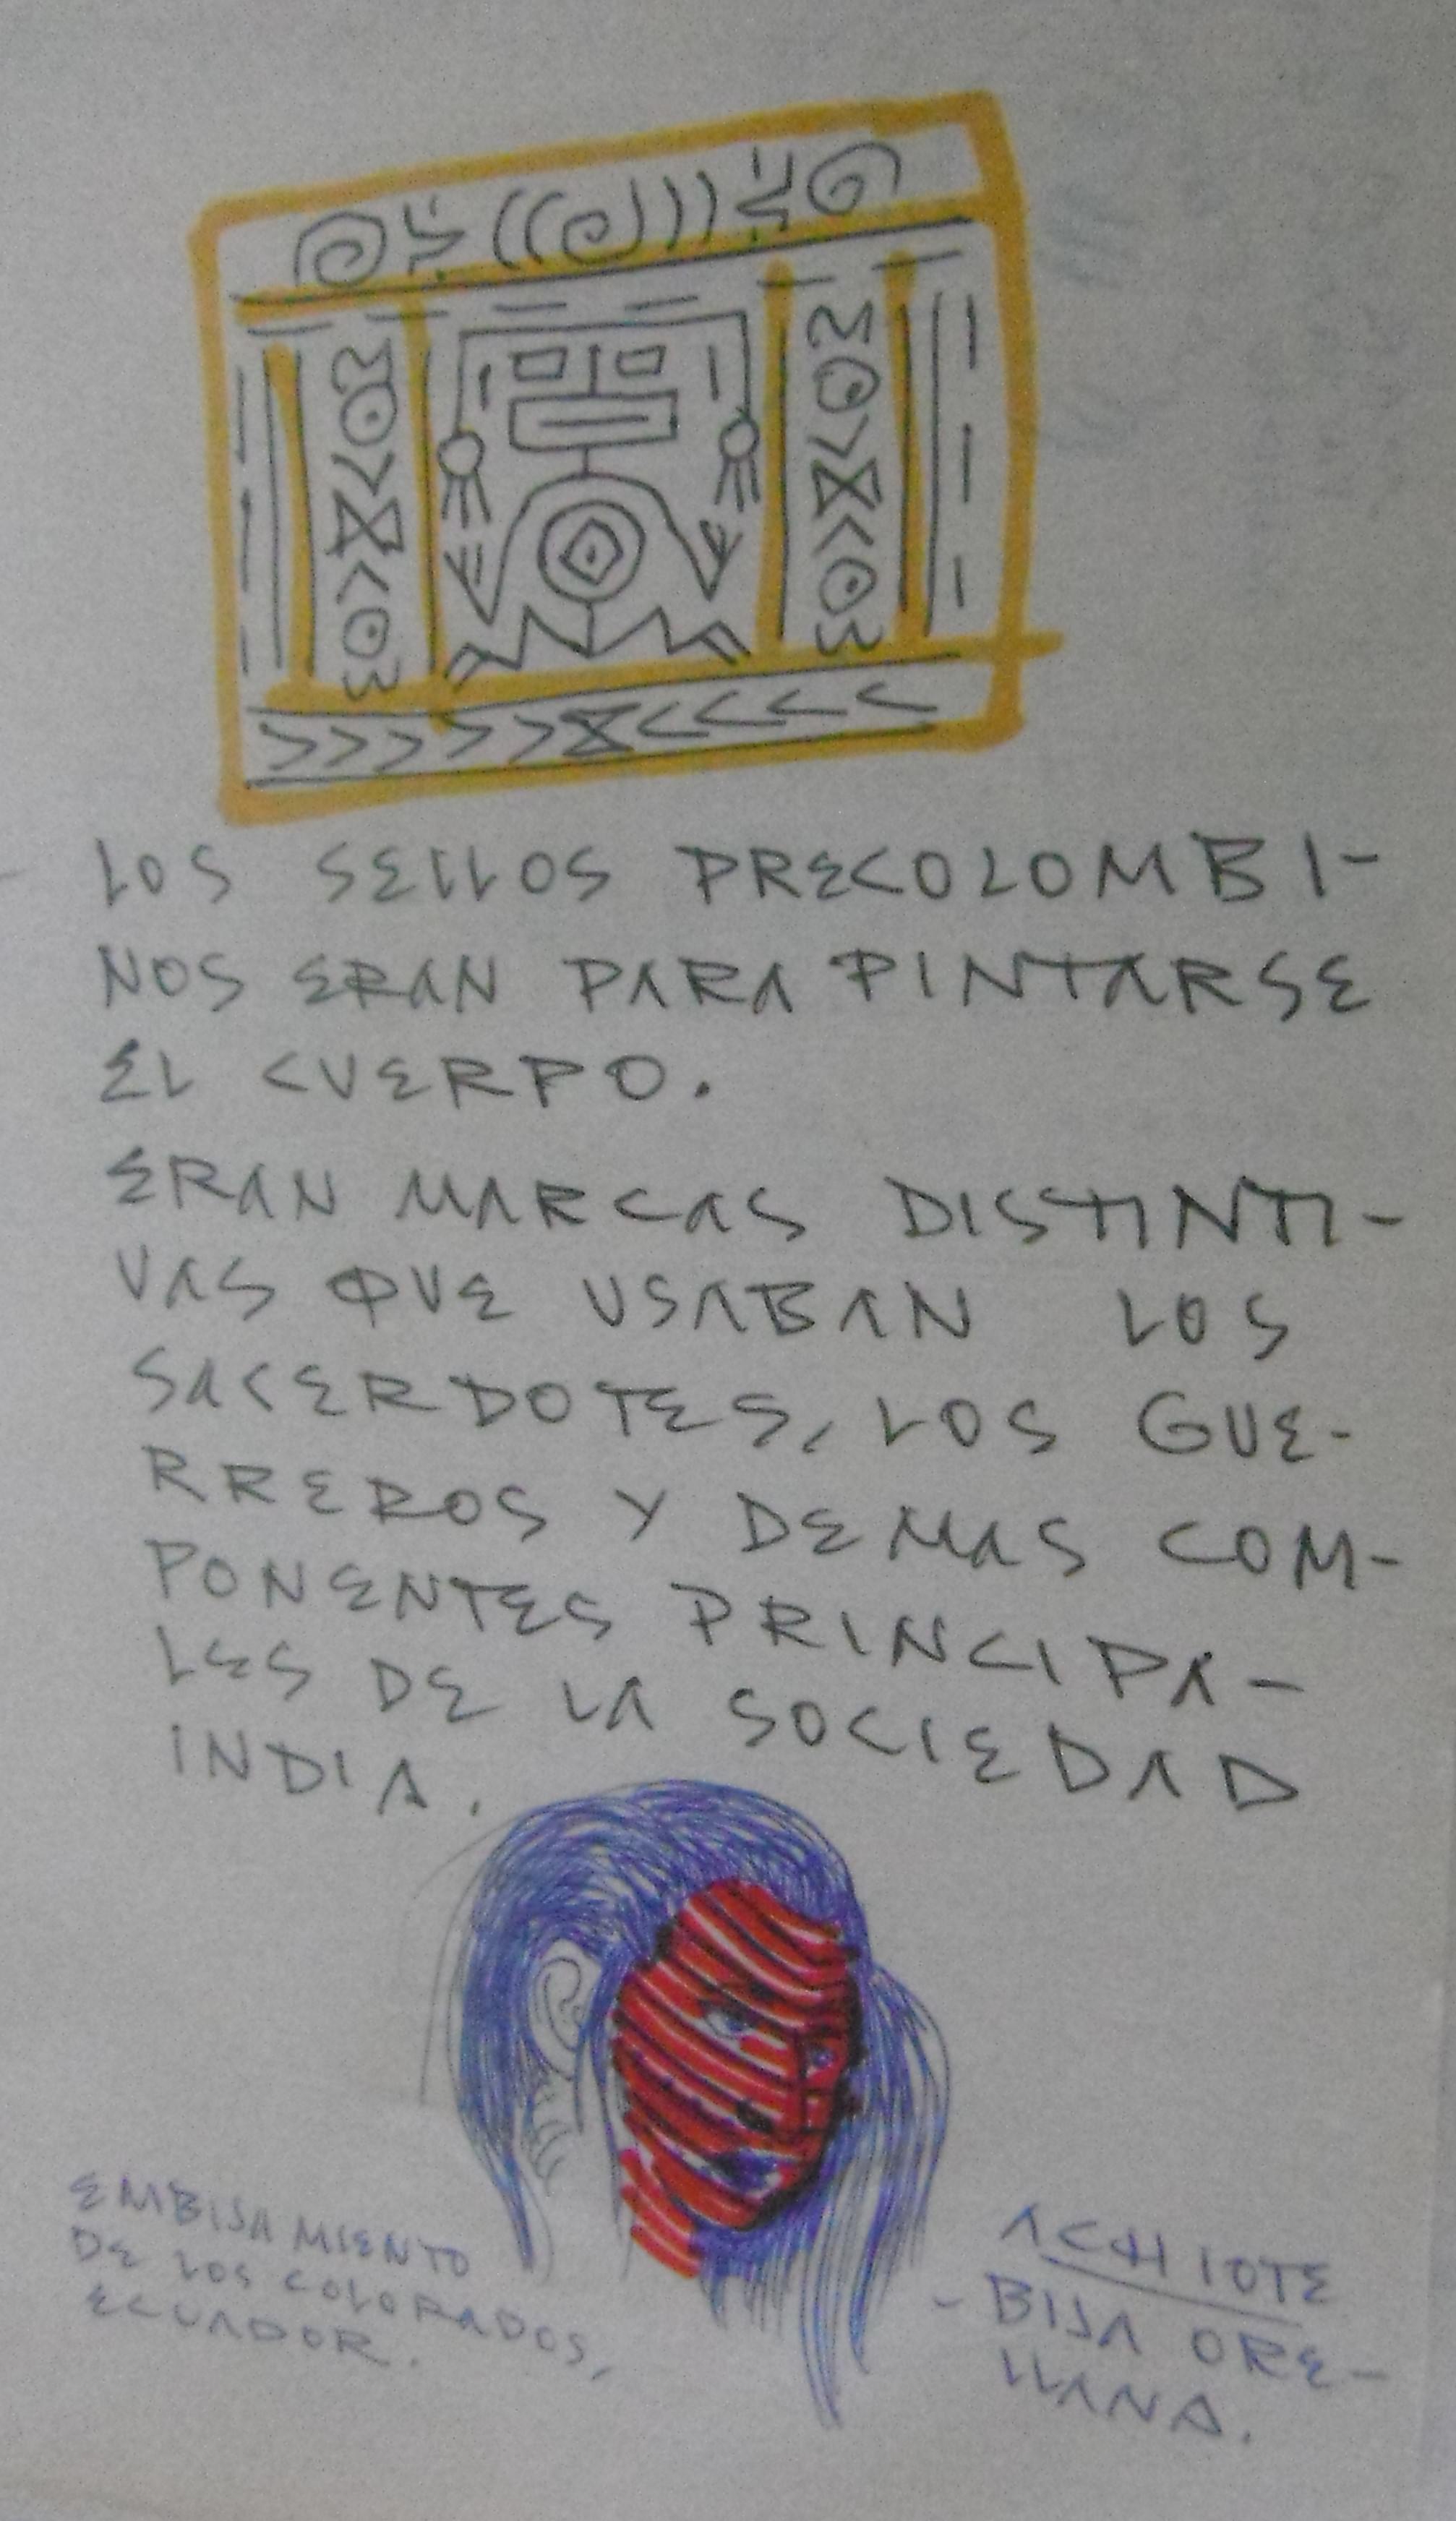 LOS SELLOS PRECOLOMBI-
NOS ERAN PARA PINTARSE
EL CUERPO.
ERAN MARCAS DISTINTI-
VAS QUE USABAN LOS
SACERDOTES, LOS GUE-
RREROS Y DEMAS COM-
PONENTES PRINCIPA-
LES DE LA SOCIEDAD
INDIA.
EMBIJAMIENTO
DE LOS COLORADOS,
ECUADOR.
ACHIOTE
- BIJA ORE-
LLANA.